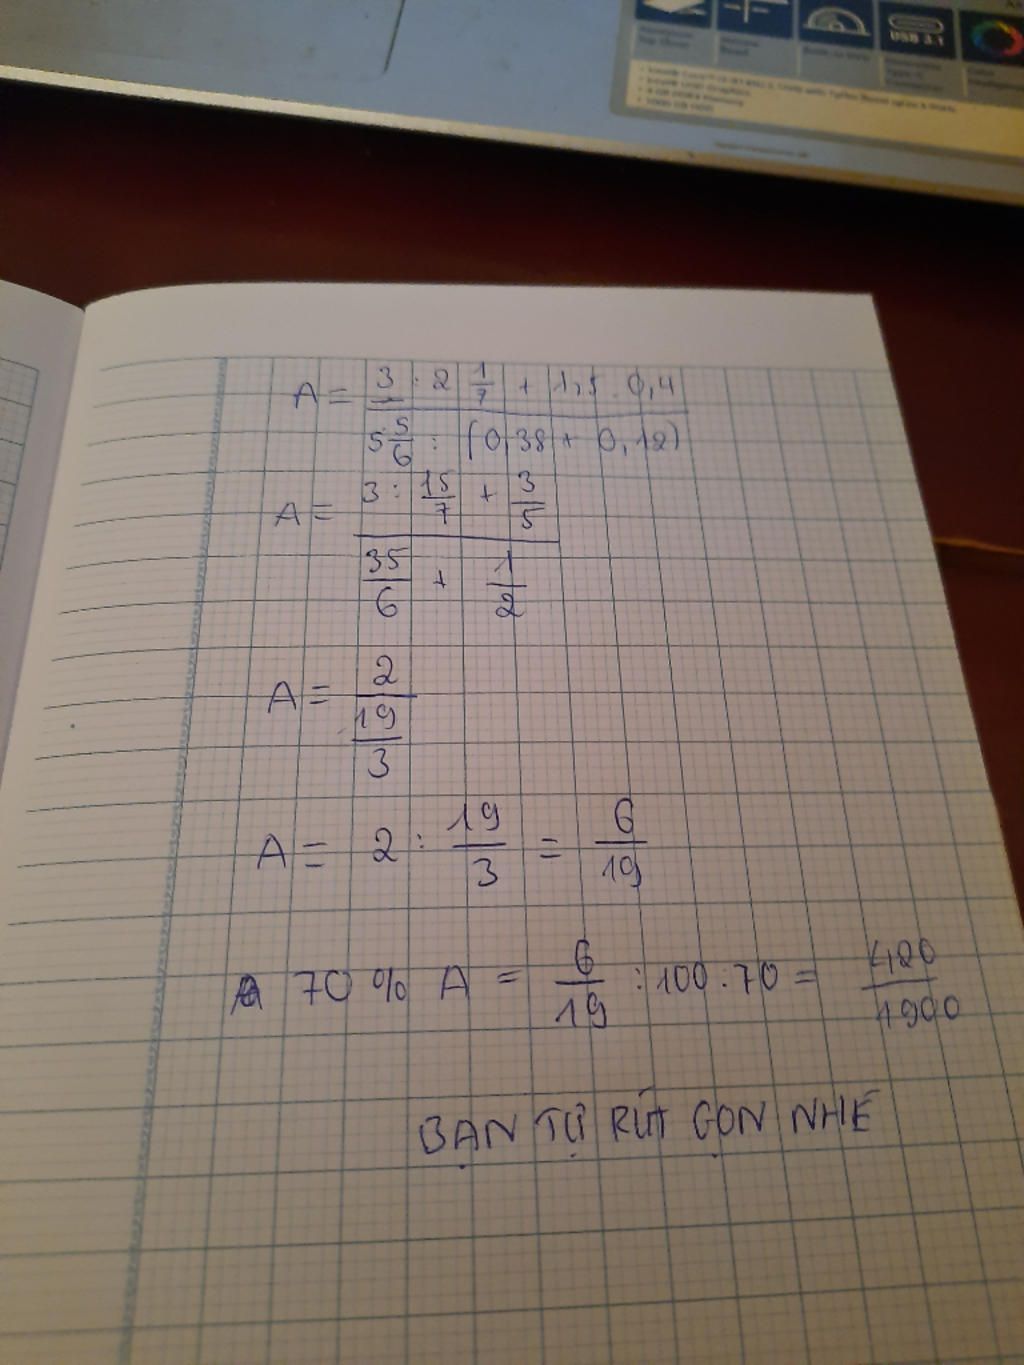 USB 3.1
A = \frac{3 : 2 \frac{1}{7} + 1,5 . 0,4}{5 \frac{5}{6} : (0,38 + 0,12)}
A = \frac{3 : \frac{15}{7} + \frac{3}{5}}{\frac{35}{6} + \frac{1}{2}}
A = \frac{2}{\frac{19}{3}}
A = 2 : \frac{19}{3} = \frac{6}{19}
70 % A = \frac{6}{19} : 100 . 70 = \frac{420}{1900}
BẠN TỰ RÚT GỌN NHÉ